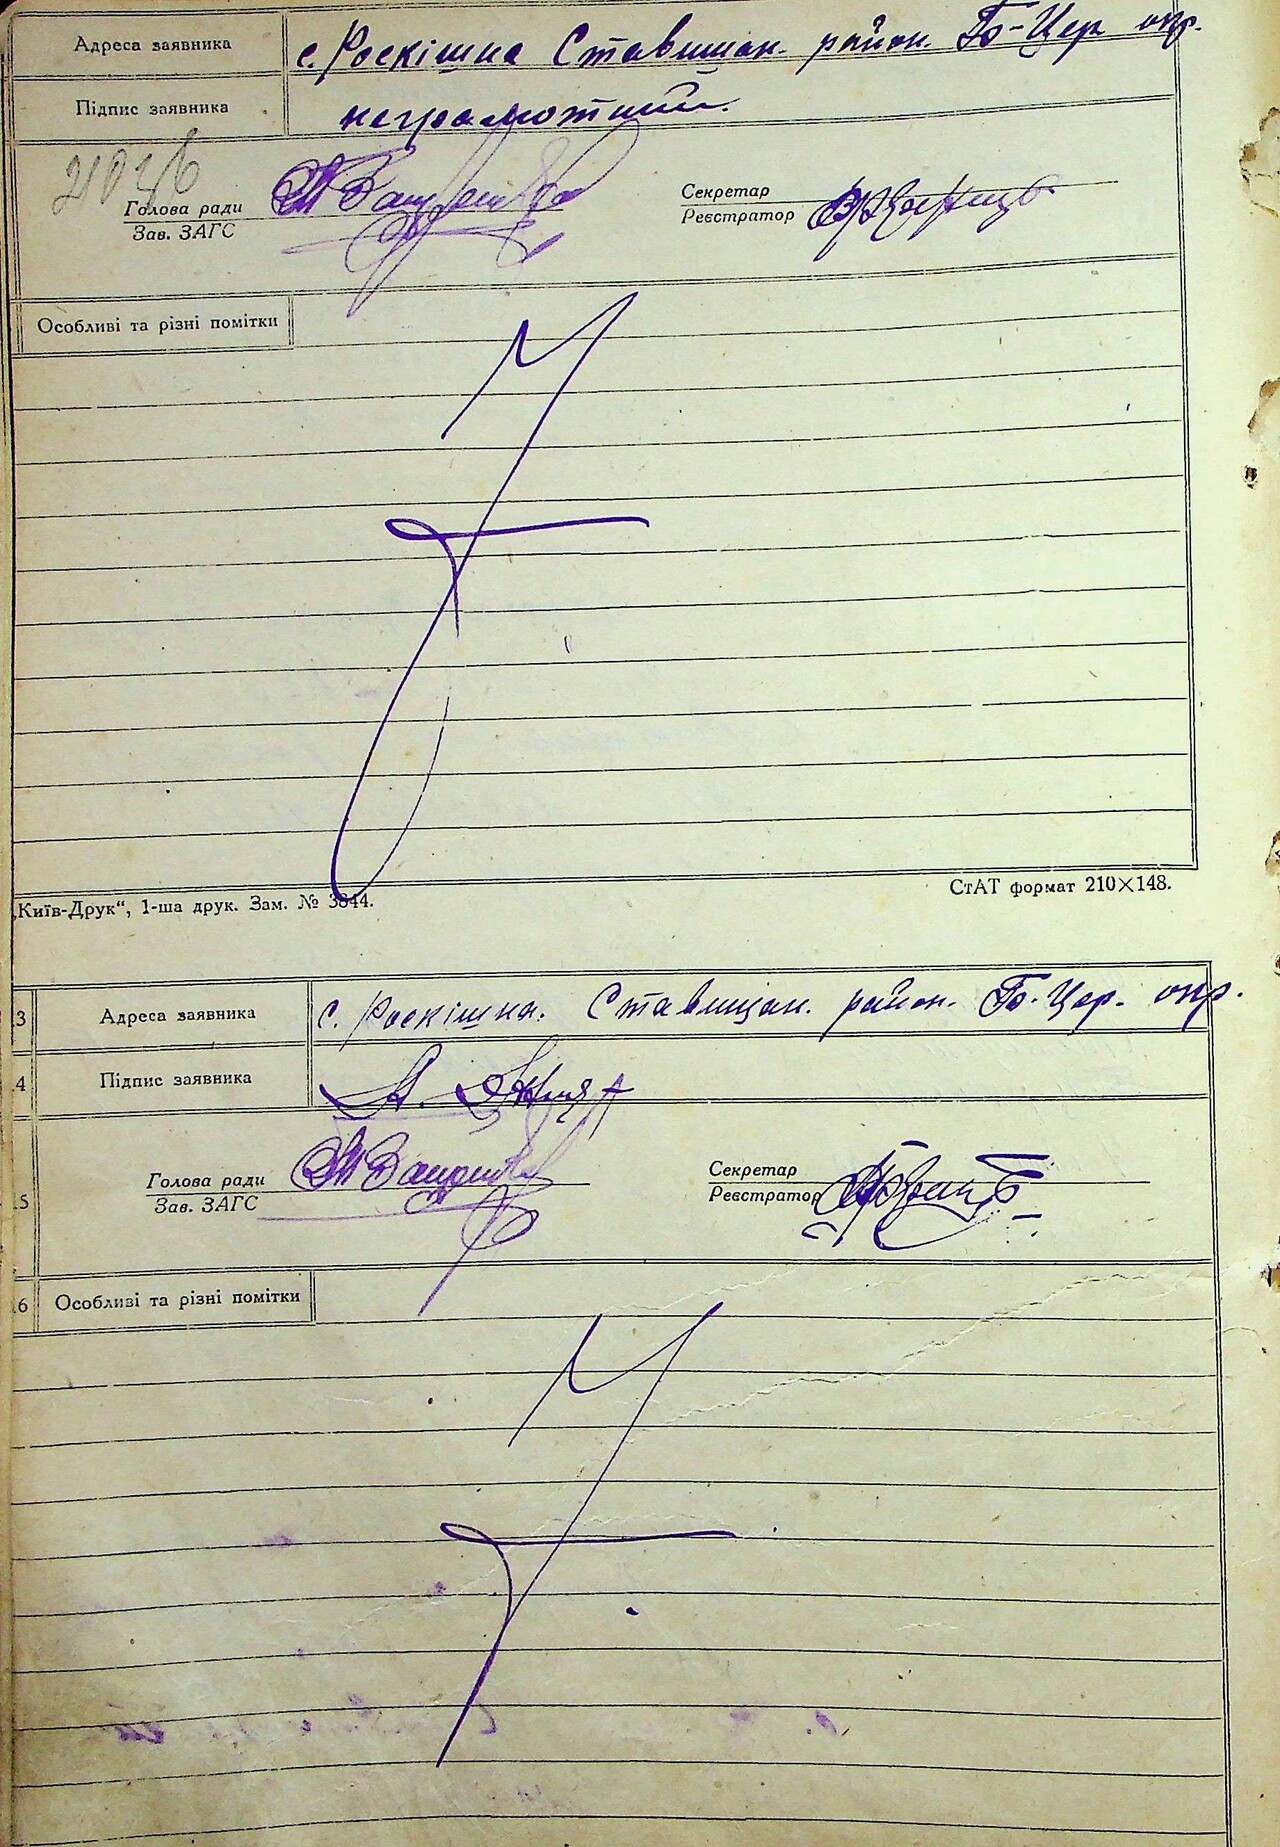 Адреса заявника с. Роскішна Ставищан. район. Б-Цер. окр.
Підпис заявника неграмотний.
Голова ради Секретар
Зав. ЗАГС Реєстратор
Особливі та різні помітки
„Київ-Друк“, 1-ша друк. Зам. № 3844. СтАТ формат 210×148.
3 Адреса заявника с. Роскішна. Ставищан. район. Б-Цер. окр.
4 Підпис заявника
Голова ради Секретар
5 Зав. ЗАГС Реєстратор
6 Особливі та різні помітки